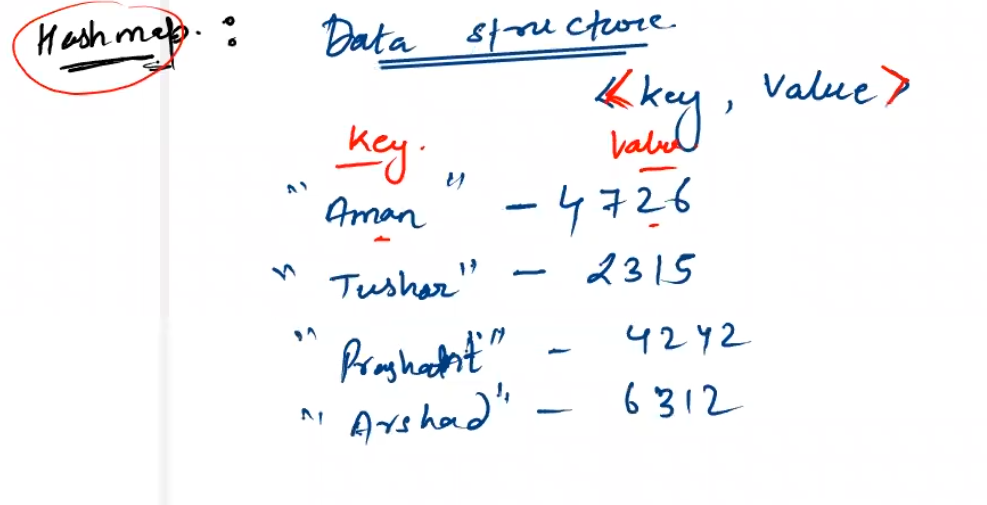 Hashmap. : Data structure
<key, Value>
Key. Value
"Aman" - 4726
"Tushar" - 2315
"Prashant" - 4242
"Arshad" - 6312